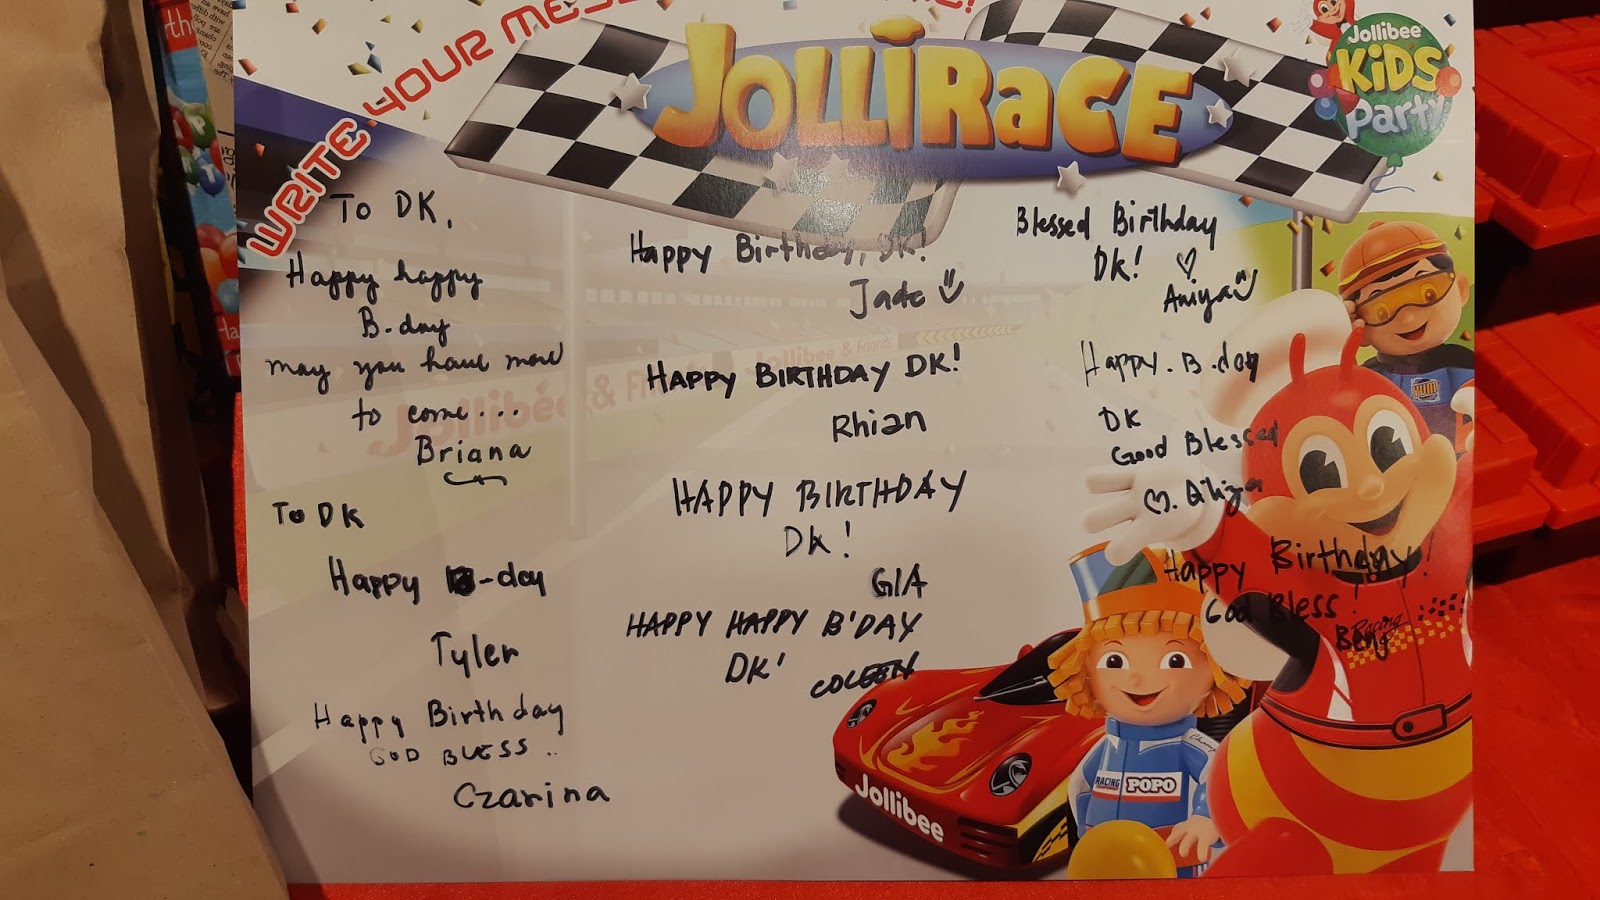 WRITE YOUR
JOLLIRACE
Jollibee
KiDS
Party
To DK,
Happy happy
B-day
may you have more
to come...
Briana
To DK
Happy B-day
Tyler
Happy Birthday
GOD BLESS..
Czarina
Happy Birthday, DK!
Jade
HAPPY BIRTHDAY DK!
Rhian
HAPPY BIRTHDAY
DK!
GIA
HAPPY HAPPY B'DAY
DK'
COLEEN
Blessed Birthday
DK!
Aniya
Happy. B.day
DK
Good Blessed
Happy Birthday!
God Bless
Benj
Jollibee & Friends
Jollibee &
YUM
Racing
RACING
POPO
Champ
Jollibee